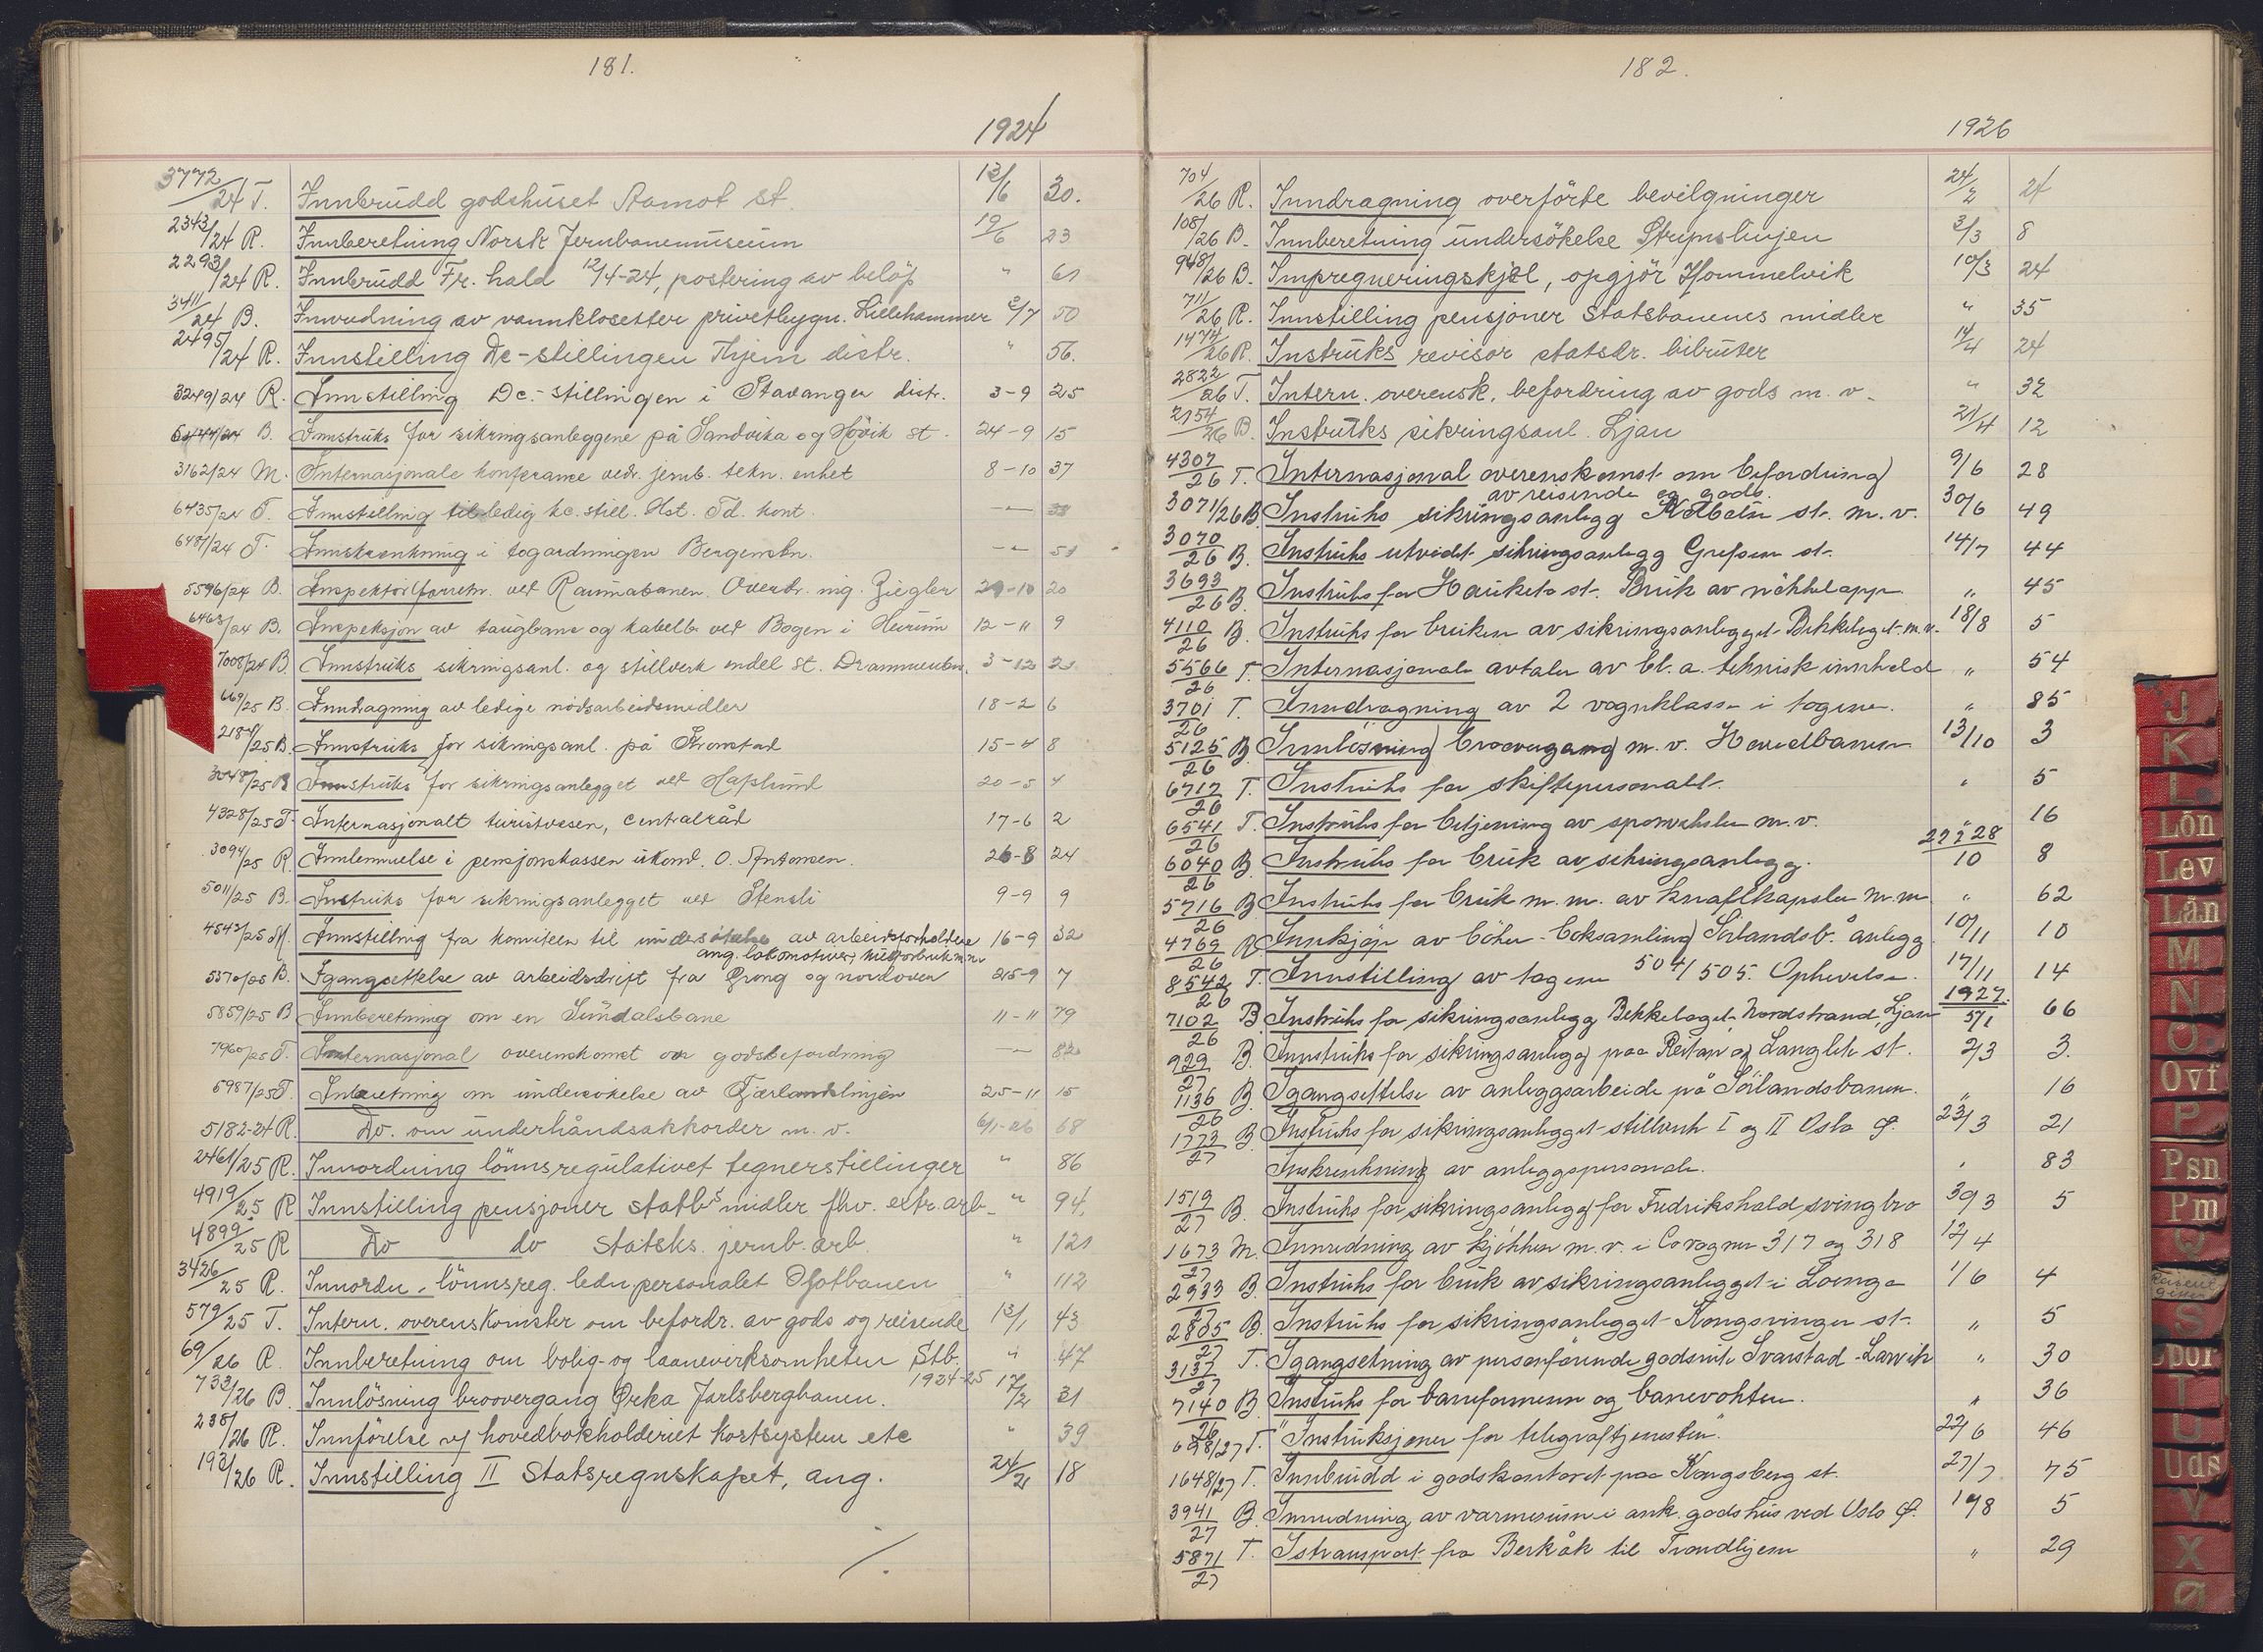 181.
1924
3772/24 T. Innbrudd godshuset Aamot st. 12/6 30.
2343/24 R. Innberetning Norsk Jernbanemuseum 19/6 23
2293/24 R. Innbrudd Fr.hald 12/4-24, postering av beløp " 61
3411/24 B. Innredning av vannklosetter privetbygn. Lillehammer 2/7 50
2495/24 R. Innstilling Dc-stillingen Thjem distr. " 56.
3249/24 R. Innstilling Dc.-stillingen i Stavanger distr. 3-9 25
B. Innstruks for sikringsanleggene på Sandvika og Høvik st. 24-9 15
3162/24 M. Internasjonale konferanse vedr. jernb. tekn. enhet 8-10 37
6435/24 T. Innstilling til ledig kc. still. Hst. Td. kont. -"-
6487/24 T. Innskrenkning i togordningen Bergensbn. -"- 51
5596/24 B. Inspektørforretn. ved Raumabanen. Overtr. ing. Ziegler 29-10 20
6463/24 B. Inspeksjon av taugbane og kabelb. ved Bogen i Hurum 12-11 9
7008/24 B. Innstruks sikringsanl. og stillverk endel st. Drammenbn. 3-12 21
669/25 B. Inndragning av ledige nødsarbeidsmidler 18-2 6
2184/25 B. Innstruks for sikringsanl. på Kronstad 15-4 8
3048/25 B Innstruks for sikringsanlegget ved Hafslund 20-5 4
4328/25 T. Internasjonalt turistvesen, centralråd 17-6 2
3094/25 R. Innlemmelse i pensjonskassen O. Antonsen. 26-8 24
5011/25 B. Instruks for sikringsanlegget ved Stensli 9-9 9
4542/25 M. Innstilling fra komiteen til undersøkelse av arbeidsforholdene 16-9 32
ang. lokomotiver,
5370/25 B. Igangsettelse av arbeidsdrift fra Grong og nordover 25-9 7
5859/25 B Innberetning om en Sundalsbane 11-11 79
7960/25 T. Internasjonal overenskomst om godsbefordring -"- 82
5987/25 T. Inberetning om undersøkelse av Fjærlandslinjen 25-11 15
5182-24 R. Do. om underhåndsakkorder m. v. 6/1-26 68
2461/25 R. Innordning lønnsregulativet tegnerstillinger " 86
4919/25 R Innstilling pensjoner statb's midler fhv. extr. arb. " 94.
4899/25 R Do do Statsks. jernb. arb " 121
3426/25 R. Innordn. lønnsreg. ledn personalet Ofotbanen " 112
579/25 T. Intern. overenskomster om befordr. av gods og reisende 13/1 43
69/26 R. Innberetning om bolig- og laanevirksomheten Stb. " 47
1924-25
733/26 B. Innløsning broovergang Ørka Jarlsbergbanen. 17/2 21
238/26 R. Innførelse v/ hovedbokholderiet kortsystem etc " 39
193/26 R. Innstilling II Statsregnskapet, ang. 24/2 18
182.
1926
704/26 R. Inndragning overførte bevilgninger 24/2 24
108/26 B. Innberetning undersøkelse Strynslinjen 3/3 8
948/26 B. Impregneringskjel, opgjør Hommelvik 10/3 24
711/26 R. Innstilling pensjoner Statsbanenes midler " 35
1474/26 R. Instruks revisor statsdr. bilruter 14/4 24
2822/26 T. Intern. overensk. befordring av gods m. v. " 32
2154/26 B. Instruks sikringsanl. Ljan 21/4 12
4307/26 T. Internasjonal overenskomst om befordring 9/6 28
av reisende og gods.
3071/26 B Instruks sikringsanlegg Kolbotn st. m. v. 30/6 49
3070/26 B. Instruks utvidet sikringsanlegg Grefsen st. 14/7 44
3693/26 B. Instruks for Hauketo st. Bruk av nøkkelapp. " 45
4110/26 B. Instruks for bruken av sikringsanlegget Bekkelaget m.v. 18/8 5
5566/26 T. Internasjonale avtaler av bl. a. teknisk innhold " 54
3701/26 T. Inndragning av 2 vognklasse i togene. " 85
5125/26 B Innløsning broovergang m. v. Hovedbanen 13/10 3
6717/26 T. Instruks for skiftepersonalet. " 5
6541/26 T. Instruks for betjening av sporveksler m. v. " 16
6040/26 B. Instruks for bruk av sikringsanlegg. 8
5716/26 B Instruks for bruk m. m. av knallkapsler m. m " 62
4769/26 B Innkjøp av bøker - boksamling Sørlandsb. anlegg 10/11 10
8542/26 T. Innstilling av togene 504/505. Ophevelse. 17/11 14
1927.
7102/26 B. Instruks for sikringsanlegg Bekkelaget Nordstrand, Ljan 5/1 66
929/27 B. Innstruks for sikringsanlegg paa Reitan og Langlete st. 2/3 3.
1136/26 B. Igangsettelse av anleggsarbeide på Sørlandsbanen. " 16
1773/27 B. Instruks for sikringsanlegget stillverk I og II Oslo Ø. 23/3 21
Inskrenkning av anleggspersonale. " 83
1519/27 B. Instruks for sikringsanlegg for Fredrikshald svingbro 30/3 5
1673/27 M. Innredning av kjøkken m. v. i Co vogner 317 og 318 12/4
2933/27 B. Instruks for bruk av sikringsanlegget i Loenga 1/6 4
2805/27 B. Instruks for sikringsanlegget Kongsvinger st. " 5
3137/27 T. Igangsetning av personførende godsrute Svarstad-Larvik " 30
7140/26 B Instruks for baneformenn og banevokter. " 36
628/27 T. "Instruksjoner for telegraftjenesten." 22/6 46
1648/27 T. Innbrudd i godskontoret paa Kongsberg st. 27/7 75
3941/27 B. Innredning av varmerum i ank. godshus ved Oslo Ø. 19/8 5
5871/27 T. Istransport fra Berkåk til Trondhjem " 29
J
K
L
Løn
Lev
Lån
M
N
O
Ovf
P
Psn
Pm
Q
S
Spor
T
U
Uds
V
X
Ø